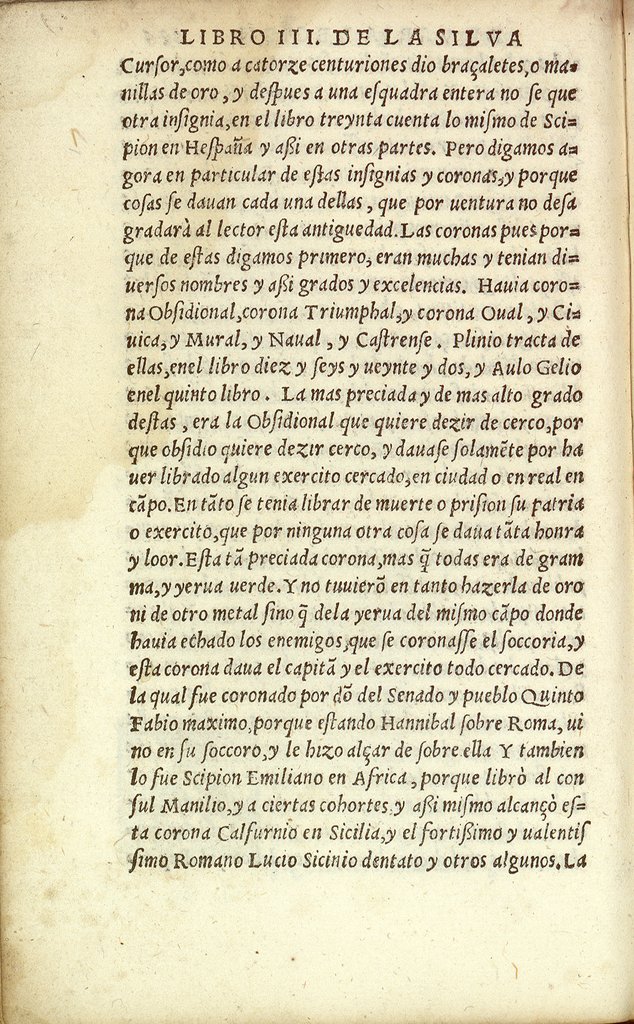 LIBRO III. DE LA SILVA
Curſor,como a catorze centuriones dio braçaletes,o ma=
nillas de oro , y deſpues a una eſquadra entera no se que
otra inſignia,en el libro treynta cuenta lo miſmo de Sci=
pion en Heſpaña y aßi en otras partes. Pero digamos a=
gora en particular de eſtas inſignias y coronas,y porque
coſas ſe dauan cada una dellas , que por uentura no deſa
gradarà al lector eſta antiguedad.Las coronas pues por=
que de eſtas digamos primero, eran muchas y tenian di=
uerſos nombres y aßi grados y excelencias. Hauia coro=
na Obſidional,corona Triumphal,y corona Oual , y Ci=
uica, y Mural, y Naual , y Caſtrenſe . Plinio tracta de
ellas,enel libro diez y ſeys y ueynte y dos, y Aulo Gelio
enel quinto libro . La mas preciada y de mas alto grado
deſtas , era la Obſidional que quiere dezir de cerco,por
que obſidio quiere dezir cerco, y dauaſe ſolamẽte por ha
uer librado algun exercito cercado,en ciudad o en real en
cãpo.En tãto ſe tenia librar de muerte o priſion ſu patria
o exercito,que por ninguna otra coſa ſe daua tãta honra
y loor.Eſta tã preciada corona,mas q̃ todas era de gram
ma,y yerua uerde.Y no tuuierõ en tanto hazerla de oro
ni de otro metal ſino q̃ dela yerua del miſmo cãpo donde
hauia echado los enemigos,que ſe coronaſſe el ſoccoria,y
eſta corona daua el capitã y el exercito todo cercado. De
la qual fue coronado por dõ del Senado y pueblo Quinto
Fabio maximo,porque eſtando Hannibal ſobre Roma, ui
no en ſu ſoccoro,y le hizo alçar de ſobre ella Y tambien
lo fue Scipion Emiliano en Africa , porque librò al con
ſul Manilio,y a ciertas cohortes y aßi miſmo alcançò eſ=
ta corona Calfurnio en Sicilia,y el fortißimo y ualentiſ
ſimo Romano Lucio Sicinio dentato y otros algunos. La